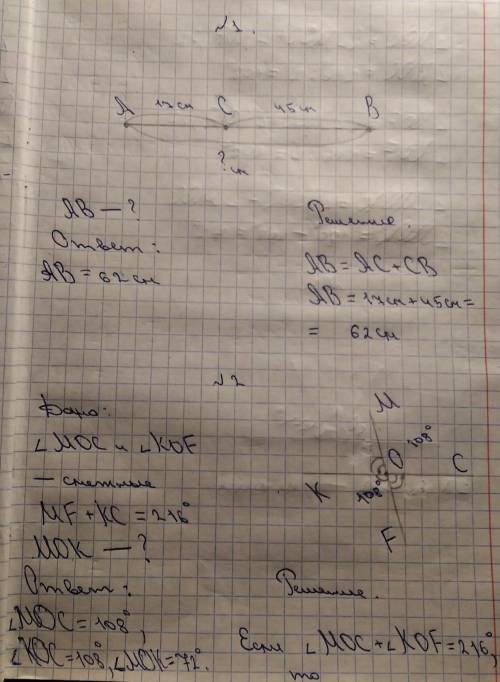 №1.
A 17см C 45см B
? см
AB — ?
Ответ:
AB = 62см
Решение.
AB = AC + CB
AB = 17см + 45см =
= 62см
№2
Дано:
∠MOC и ∠KOF
— смежные
MF + KC = 216°
MOK — ?
Ответ:
∠MOC = 108°,
∠KOC = 108°, ∠MOK = 72°.
M
O 108° C
K 108°
F
Решение.
Если ∠MOC + ∠KOF = 216°,
то